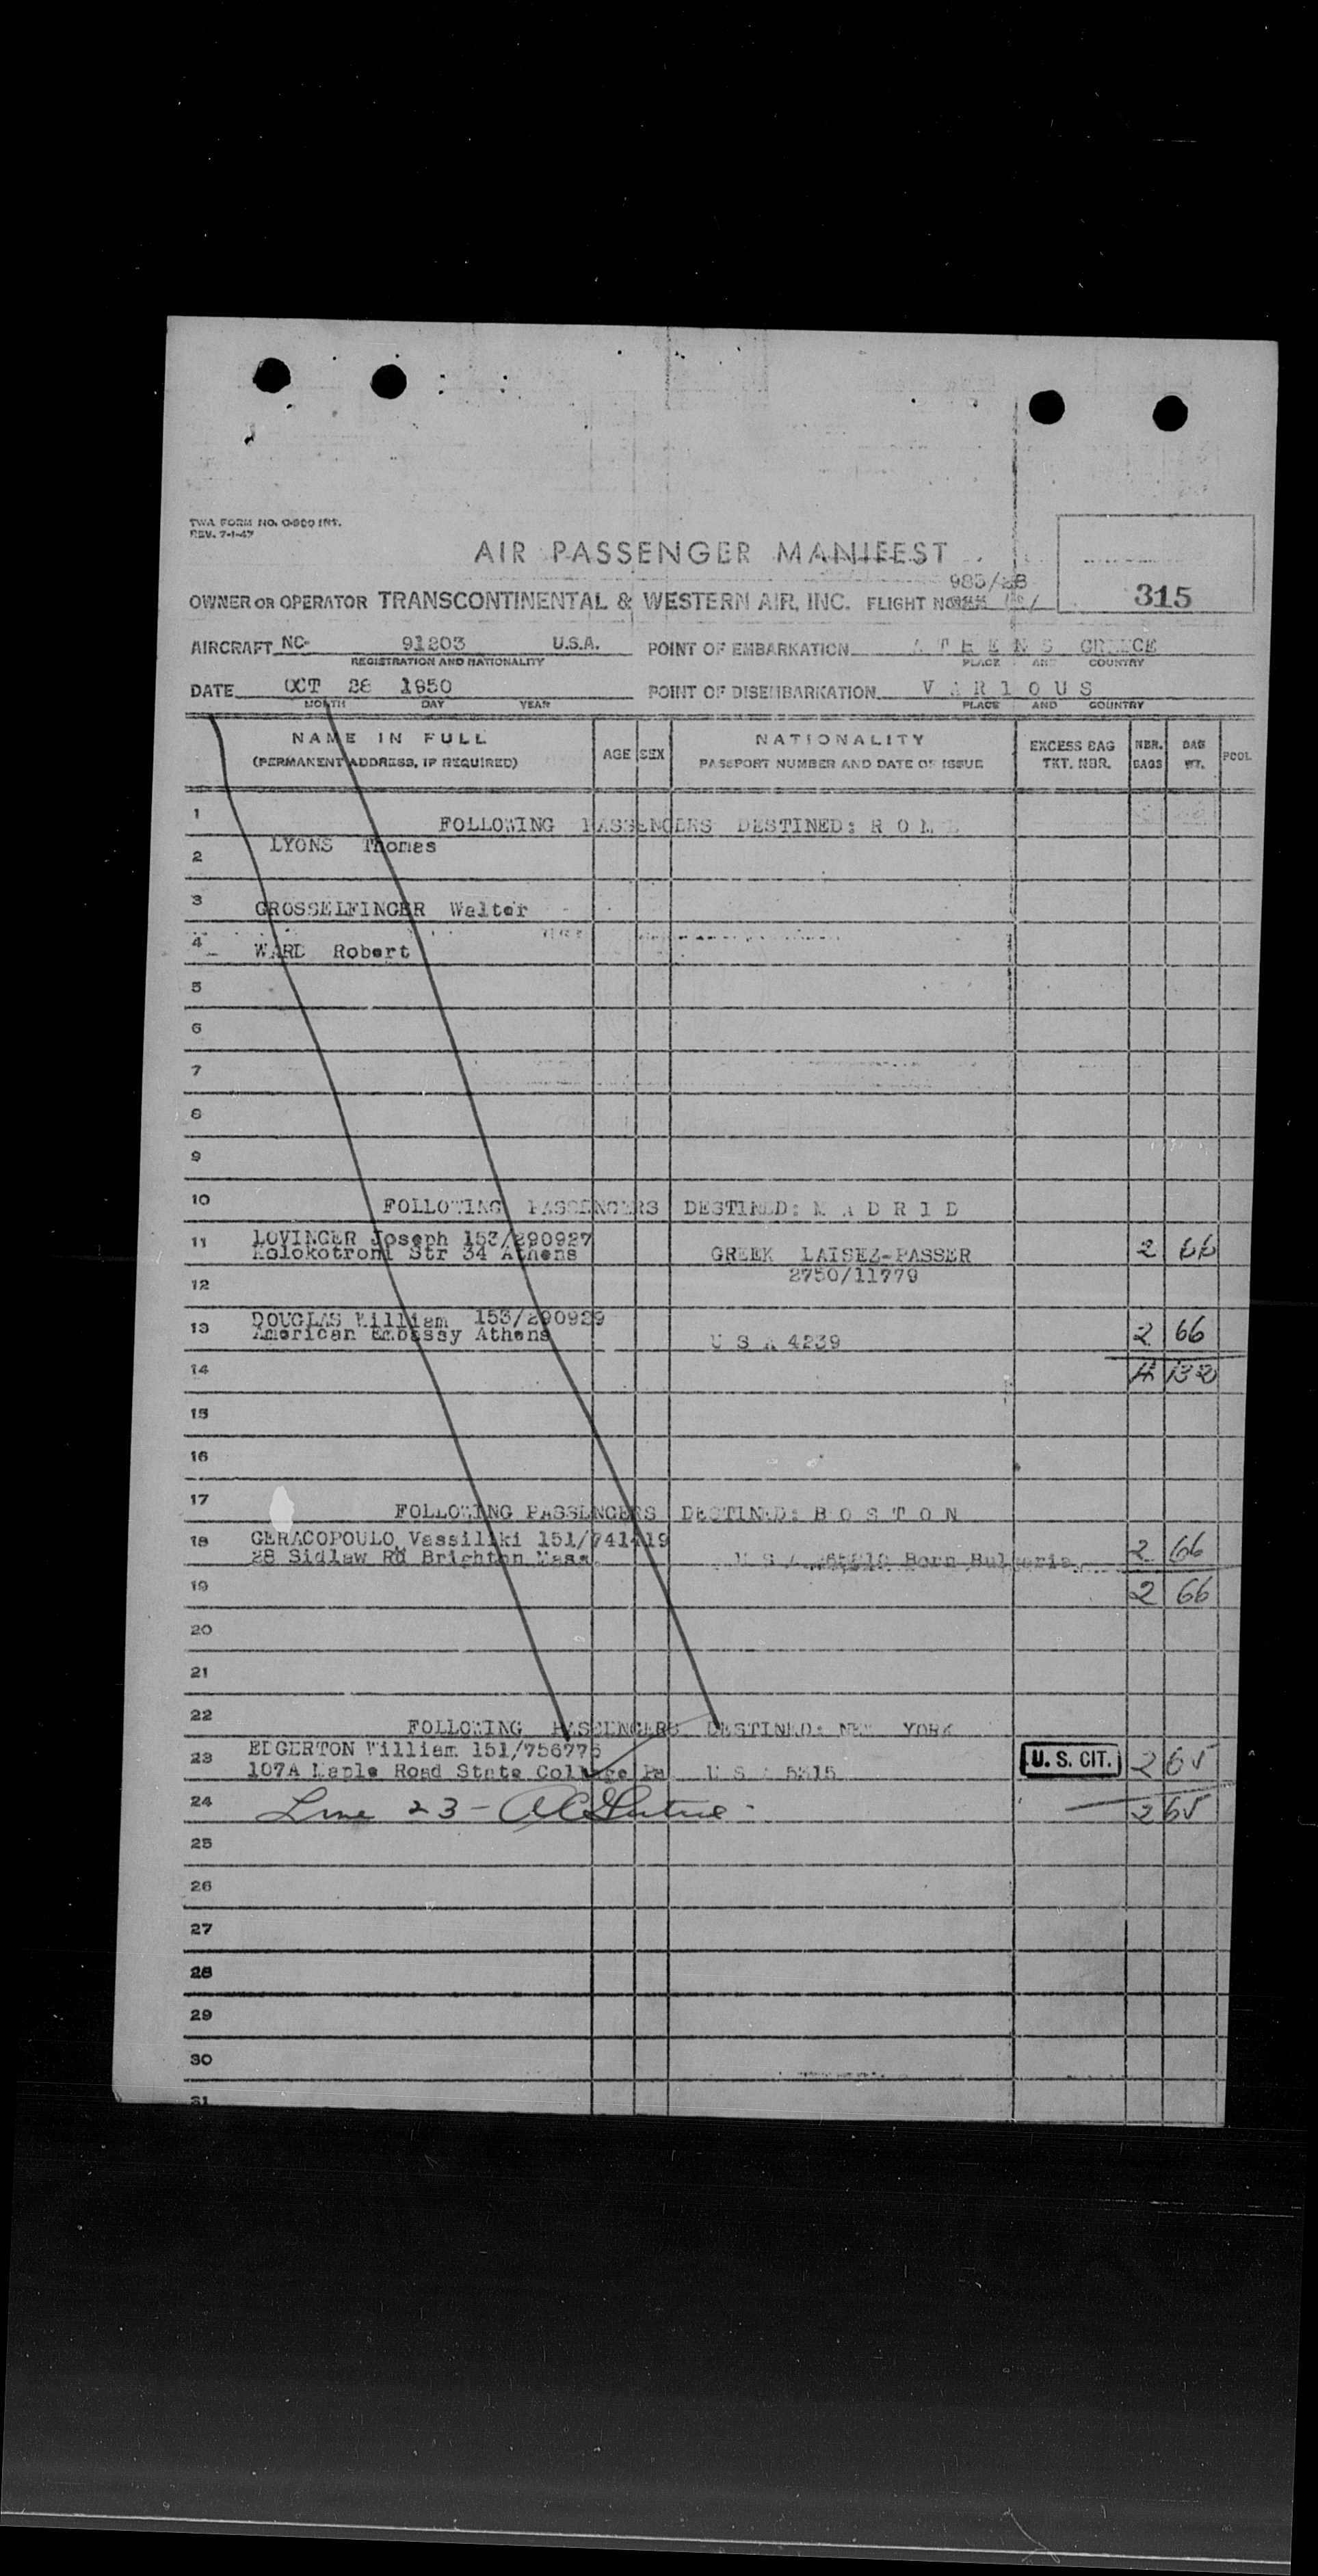 TWA FORM NO. O-800 INT.
REV. 7-1-47
AIR PASSENGER MANIFEST
315
983/28
OWNER OR OPERATOR TRANSCONTINENTAL & WESTERN AIR, INC. FLIGHT NO.
AIRCRAFT NC- 91203 U.S.A. POINT OF EMBARKATION A T H E N S GREECE
REGISTRATION AND NATIONALITY PLACE AND COUNTRY
DATE OCT 28 1950 POINT OF DISEMBARKATION V A R 1 O U S
MONTH DAY YEAR PLACE AND COUNTRY
NAME IN FULL AGE SEX NATIONALITY EXCESS BAG NBR. BAG POOL
(PERMANENT ADDRESS, IF REQUIRED) PASSPORT NUMBER AND DATE OF ISSUE TKT. NBR. BAGS WT.
1 FOLLOWING PASSENGERS DESTINED: R O M E
2 LYONS Thomas
3 GROSSELFINGER Walter
4 WARD Robert
5
6
7
8
9
10 FOLLOWING PASSENGERS DESTINED: M A D R 1 D
11 LOVINGER Joseph 153/290927 2 66
Kolokotroni Str 34 Athens GREEK LAISEZ-PASSER
12 2750/11779
13 DOUGLAS William 153/290929 2 66
American Embassy Athens U S A 4239
14 4 132
15
16
17 FOLLOWING PASSENGERS DESTINED: B O S T O N
18 GERACOPOULO Vassiliki 151/741419 2 66
28 Sidlaw Rd Brighton Mass. U S A Born Bulgaria
19 2 66
20
21
22 FOLLOWING PASSENGERS DESTINED: NEW YORK
23 EDGERTON William 151/756776 U. S. CIT. 2 65
107A Maple Road State College Pa U S A 5315
24 Line 23 - 2 65
25
26
27
28
29
30
31